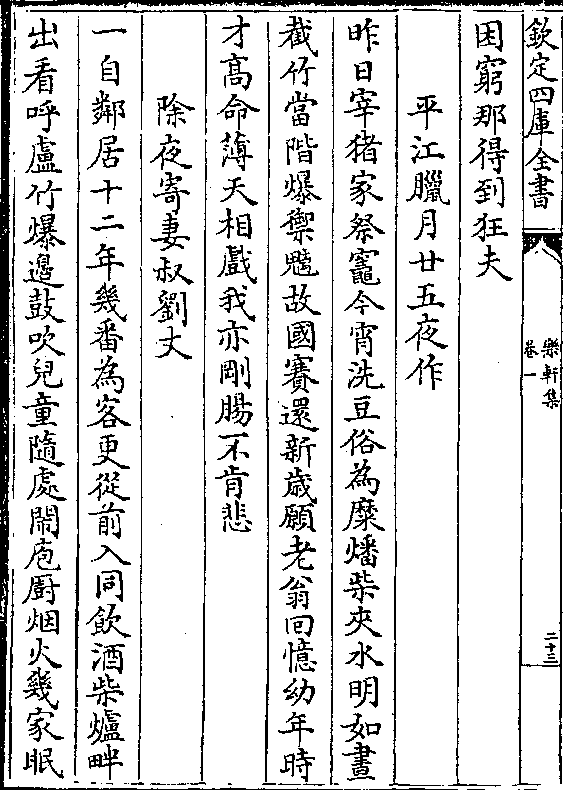 欽定四庫全書
樂軒集
卷一
二十三
困窮那得到狂夫
平江臘月廿五夜作
昨日宰猪家祭竈今宵洗豆俗為糜燔柴夾水明如晝
截竹當階爆禦魑故國賽還新歲願老翁回憶幼年時
才髙命薄天相戲我亦剛腸不肯悲
除夜寄妻叔劉丈
一自鄰居十二年幾番為客更從前入同飲酒柴爐畔
出看呼盧竹爆邉鼓吹兒童隨處鬧庖廚烟火幾家眠